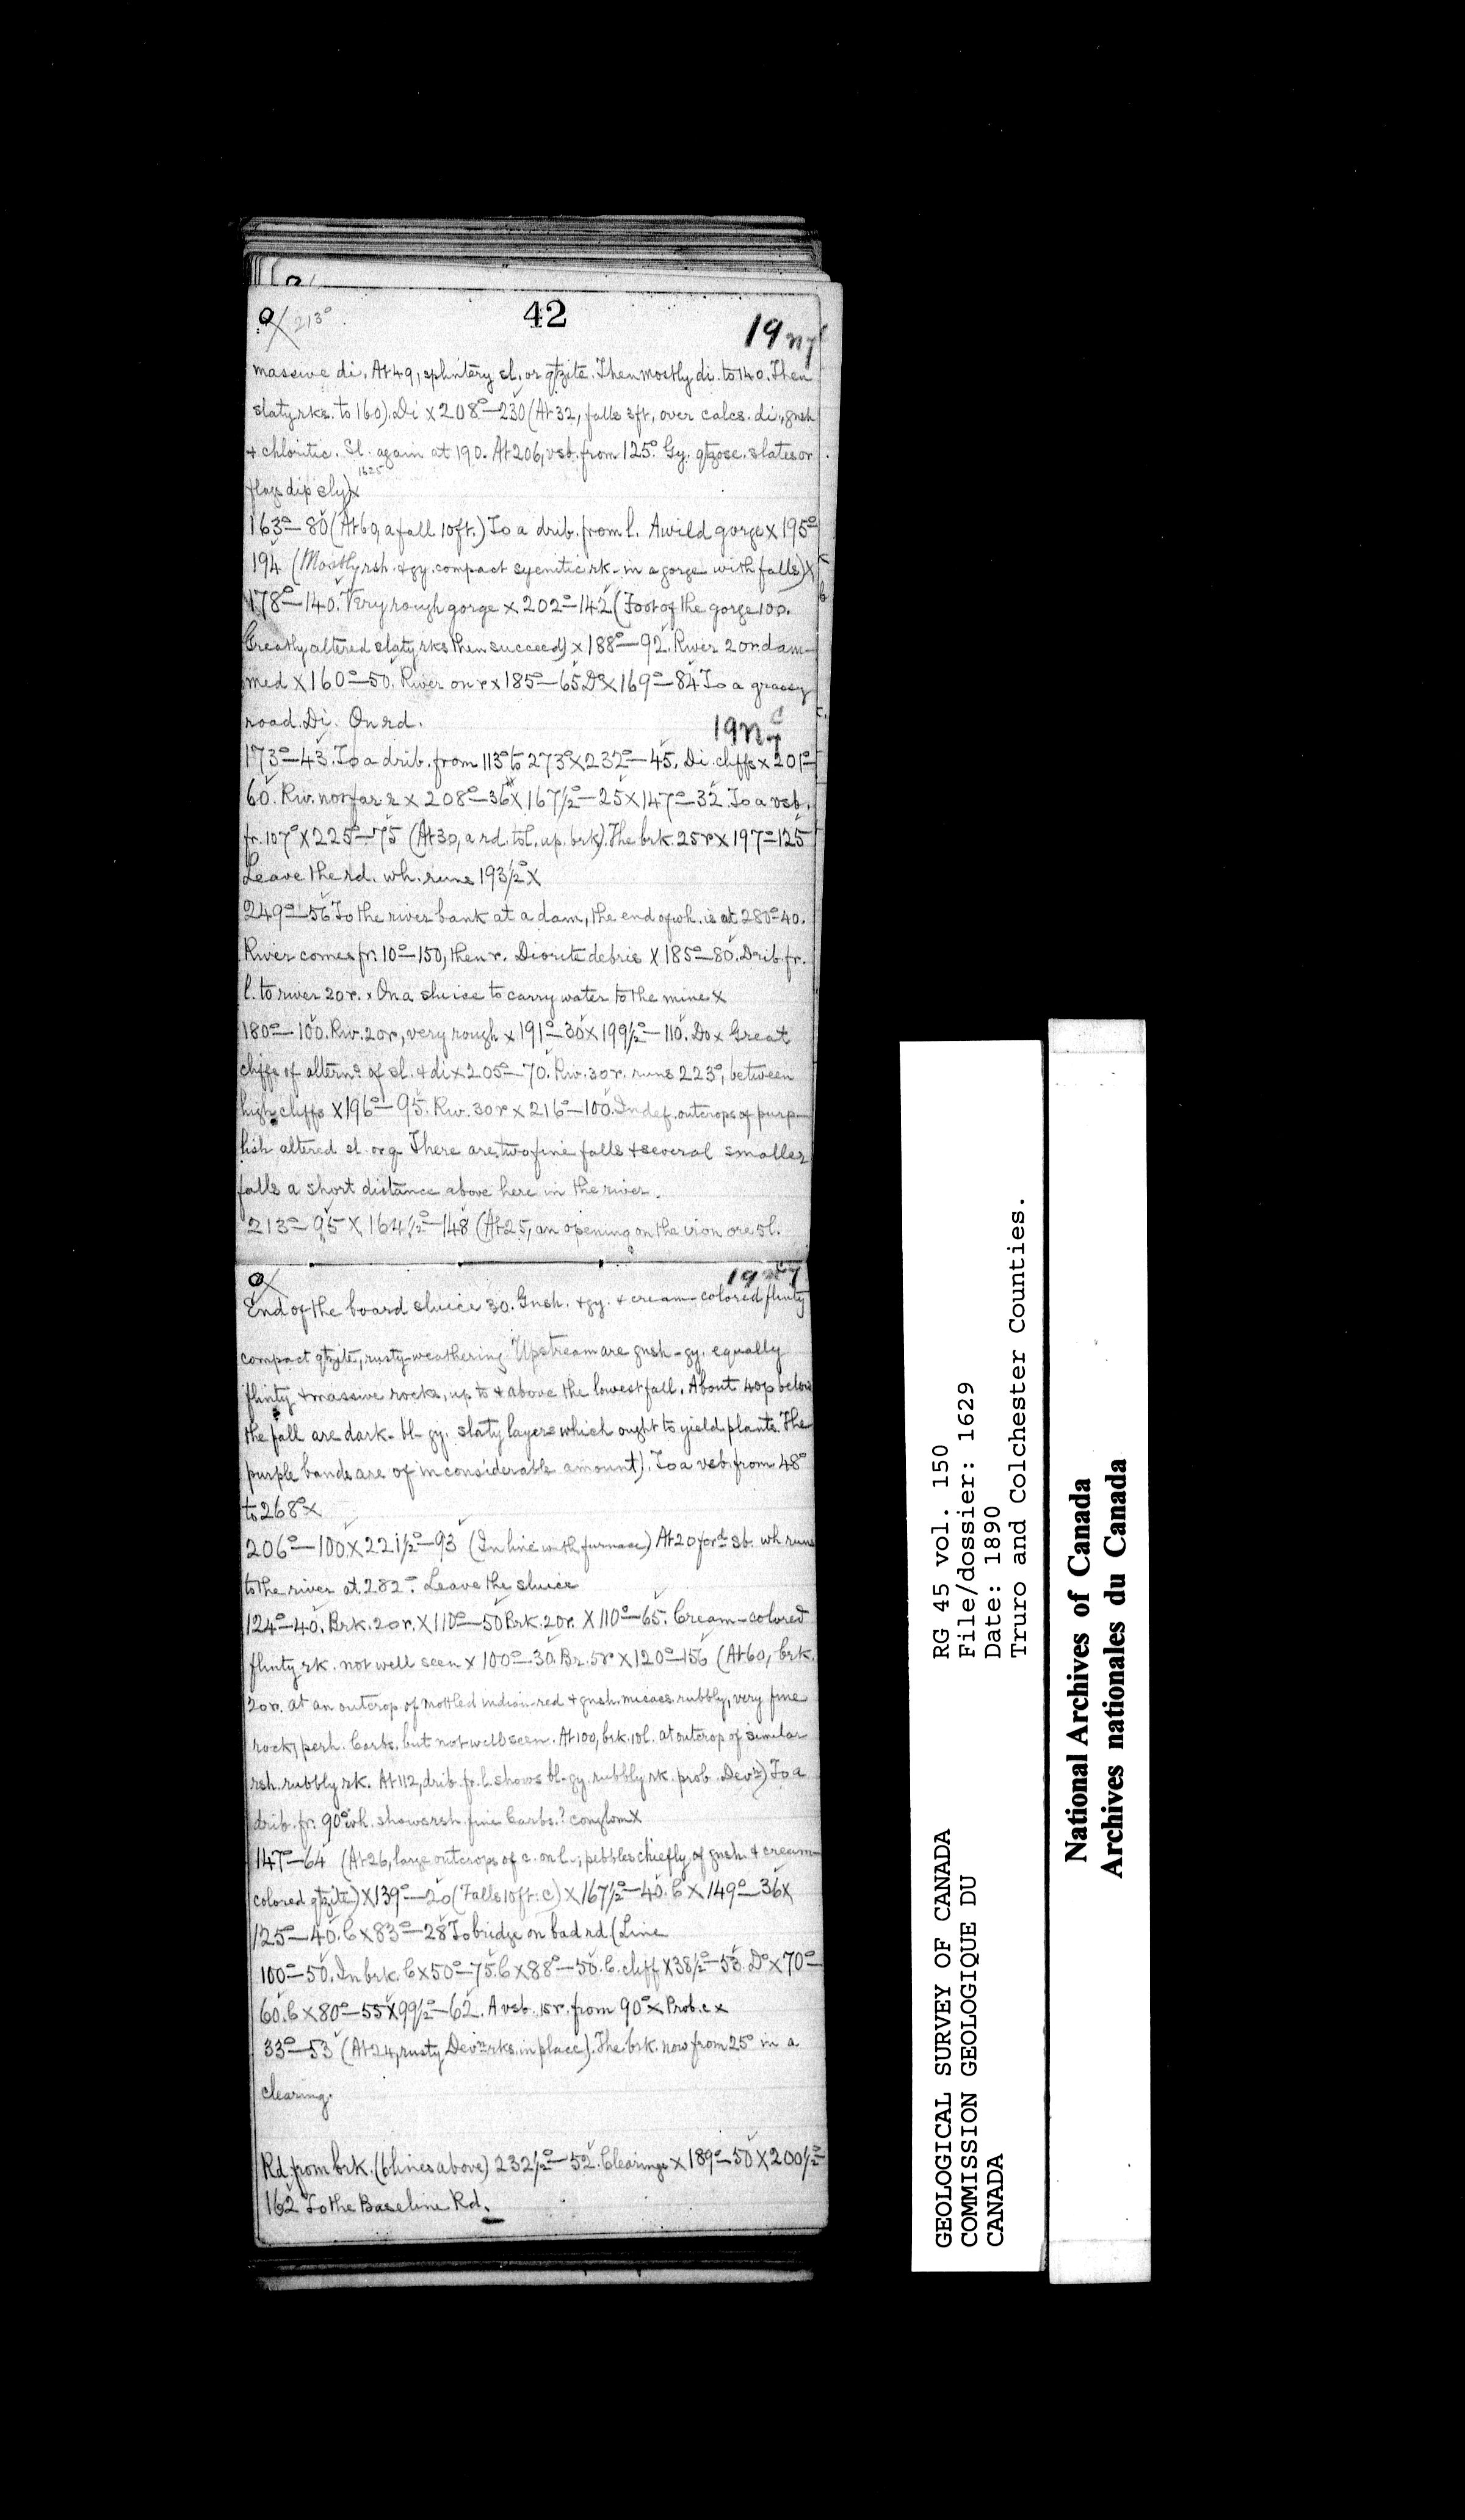 42
213°
19 n 7
massive di. At 49, splintery sl. or qtzite. Then mostly di. to 140. Then
slaty rks. to 160). Di x 208°—230 (At 32, falls 3ft, over calcs. di., gnsh
+ chloritic. Sl. again at 190. At 206, vsb. from 125°. Gy. qtzose. slates or
flags dip sly) x
163°—80 (At 60, a fall 10ft.) To a drib. from l. A wild gorge x 195°—
194 (Mostly rsh. + gy. compact syenitic rk. in a gorge with falls) x
178°—140. Very rough gorge x 202°—142 (Foot of the gorge 100.
Greatly altered slaty rks then succeed) x 188°—92. River 20r. dam-
med x 160°—50. River on r x 185°—65 Do x 169°—84. To a grassy
road. Di. On rd.
19 n 7
173°—43. To a drib. from 113° to 273° x 232°—45. Di. cliffs x 201°—
60. Riv. not far r x 208°—36 x 167½°—25 x 147°—32. To a vsb.
fr. 107° x 225°—75 (At 30, a rd. to l. up. brk). The brk. 25r x 197°—125
Leave the rd. wh. runs 193½° x
249°—56 To the river bank at a dam, the end of wh. is at 280°—40.
River comes fr. 10°—150, then r. Diorite debris x 185°—80. Drib. fr.
l. to river 20r. x On a sluice to carry water to the mine x
180°—100. Riv. 20r, very rough x 191°—30 x 199½°—110. Do x Great
cliffs of alterns. of sl. + di x 205°—70. Riv. 30r. runs 223°, between
high cliffs x 196°—95. Riv. 30r x 216°—100. Indef. outcrops of purp-
lish altered sl. or q. There are two fine falls + several smaller
falls a short distance above here in the river.
213°—95 x 164½°—148 (At 25, an opening on the iron ore 5l.
19 n 7
End of the board sluice 30. Gnsh. + gy. + cream-colored flinty
compact qtzite, rusty-weathering. Upstream are gnsh-gy. equally
flinty + massive rocks, up to + above the lowest fall. About 40p below
the fall are dark-bl-gy. slaty layers which ought to yield plants. The
purple bands are of inconsiderable amount). To a vsb. from 48°
to 268° x
206°—100 x 221½°—93 (In line with furnace) At 20 ford sb. wh. runs
to the river at 282°. Leave the sluice
124°—40. Brk. 20r. x 110°—50 Brk. 20r. x 110°—65. Cream-colored
flinty rk. not well seen x 100°—30. Br. 5r x 120°—156 (At 60, brk.
20r. at an outcrop of mottled indian-red + gnsh. micacs. rubbly, very fine
rock, perh. Carbs. but not well seen. At 100, brk. 10l. at outcrop of similar
rsh. rubbly rk. At 112, drib. fr. l. shows bl-gy. rubbly rk. prob. Devn.) To a
drib. fr. 90° wh. shows rsh. fine Carbs.? conglom x
147°—64 (At 26, large outcrops of c. on l.; pebbles chiefly of gnsh. + cream-
colored qtzite) x 139°—20 (Falls 10ft: c) x 167½°—40. C x 149°—36 x
125°—40. C x 83°—28 To bridge on bad rd. (Line
100°—50. In brk. C x 50°—75. C x 88°—50. C. cliff x 38½°—53. Do x 70°—
60. C x 80°—55 x 99½°—62. A vsb. 15r. from 90° x Prob. c x
33°—53 (At 24, rusty Devn. rks. in place). The brk. now from 25° in a
clearing.
Rd. from brk. (6 lines above) 232½°—52. Clearings x 189°—50 x 200½°—
162 To the Baseline Rd.
GEOLOGICAL SURVEY OF CANADA
COMMISSION GEOLOGIQUE DU
CANADA
RG 45 vol. 150
File/dossier: 1629
Date: 1890
Truro and Colchester Counties.
National Archives of Canada
Archives nationales du Canada